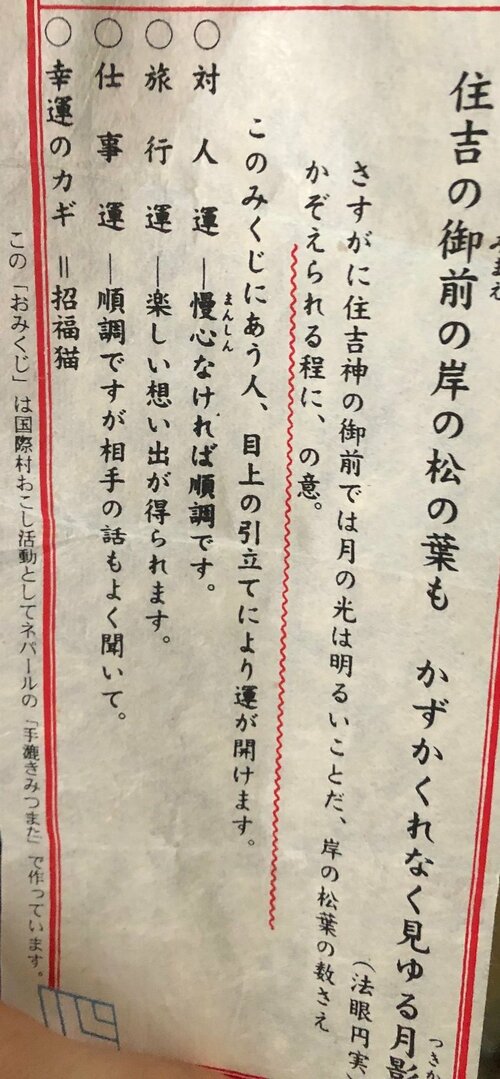 住吉の御前の岸の松の葉も　かずかくれなく見ゆる月影
（法眼円実
さすがに住吉神の御前では月の光は明るいことだ、岸の松葉の数さえ
かぞえられる程に、の意。
このみくじにあう人、目上の引立てにより運が開けます。
○対人運―慢心なければ順調です。
まんしん
○旅行運―楽しい想い出が得られます。
○仕事運―順調ですが相手の話もよく聞いて。
○幸運のカギ＝招福猫
この「おみくじ」は国際村おこし活動としてネパールの「手漉きみつまた」で作っています。